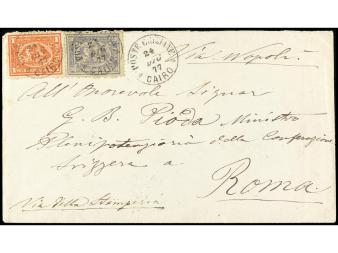 POSTE EGIZIANE
24
77
CAIRO
Via Napoli
All' Onorevole Signor
G. B. Pioda Ministro
Plenipotenziario della Confederazione
Svizzera a
Roma
Via della Stamperia